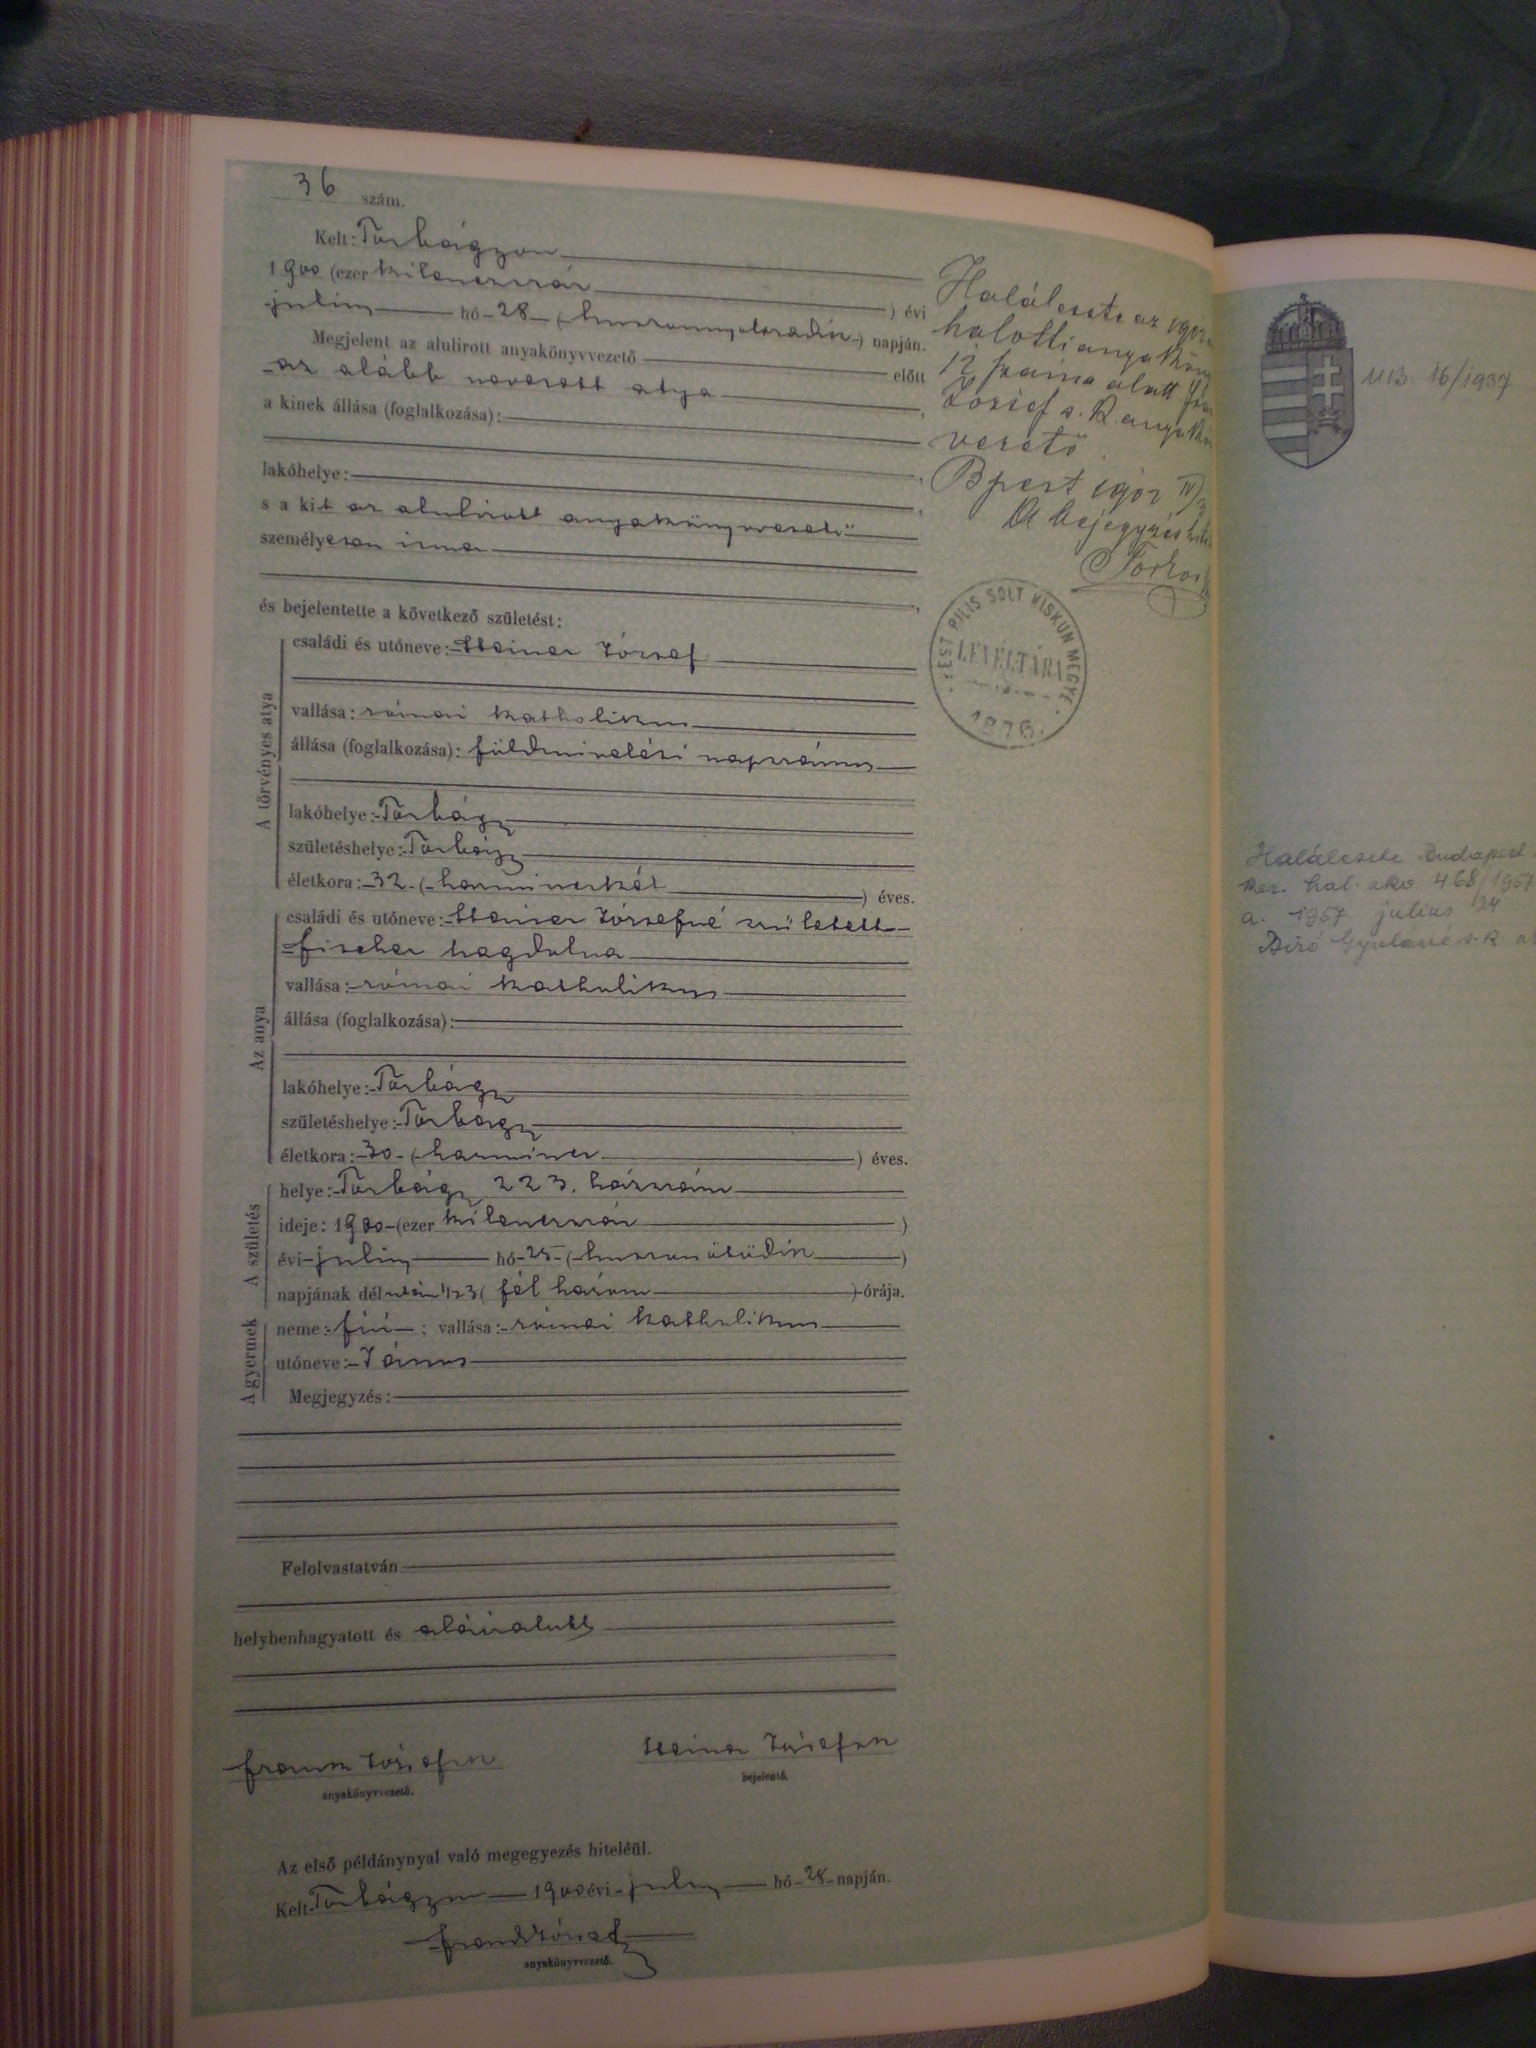 36 szám.
Kelt: Torbágyon
1900 (ezer kilenczszáz ) évi
julius hó 28 (huszonnyolczadik) napján.
Megjelent az alulirott anyakönyvvezető előtt
az alább nevezett atya
a kinek állása (foglalkozása):
lakóhelye:
s a kit az alulirott anyakönyvvezető
személyesen ismer
és bejelentette a következő születést:
A törvényes atya
családi és utóneve: Steiner József
vallása: római katholikus
állása (foglalkozása): földmivelési napszámos
lakóhelye: Torbágy
születéshelye: Torbágy
életkora: 32 (harminczkét ) éves.
Az anya
családi és utóneve: Steiner Józsefné született
Fischer Magdolna
vallása: római katholikus
állása (foglalkozása):
lakóhelye: Torbágy
születéshelye: Torbágy
életkora: 30 (harmincz ) éves.
A születés
helye: Torbágy 223. házszám
ideje: 1900 (ezer kilenczszáz )
évi julius hó 25 (huszonötödik )
napjának délután 1/2 3 ( fél három ) órája.
A gyermek
neme: fiú ; vallása: római katholikus
utóneve: János
Megjegyzés:
Felolvastatván
helybenhagyatott és aláiratott
Steiner József
anyakönyvvezető.
bejelentő.
Az első példánynyal való megegyezés hiteléül.
Kelt Torbágyon 1900 évi julius hó 28 napján.
anyakönyvvezető.
Halálesete az
halotti
12 száma alatt
József s. k.
vezető
Bpest
A bejegyzés
PEST PILIS SOLT KISKUN MEGYE
LEVÉLTÁRA
1876.
16/1937
Halálesete Budapest
ker. hal. akv. 468/1957
a. 1957 julius 24
Biró Gyuláné s. k.